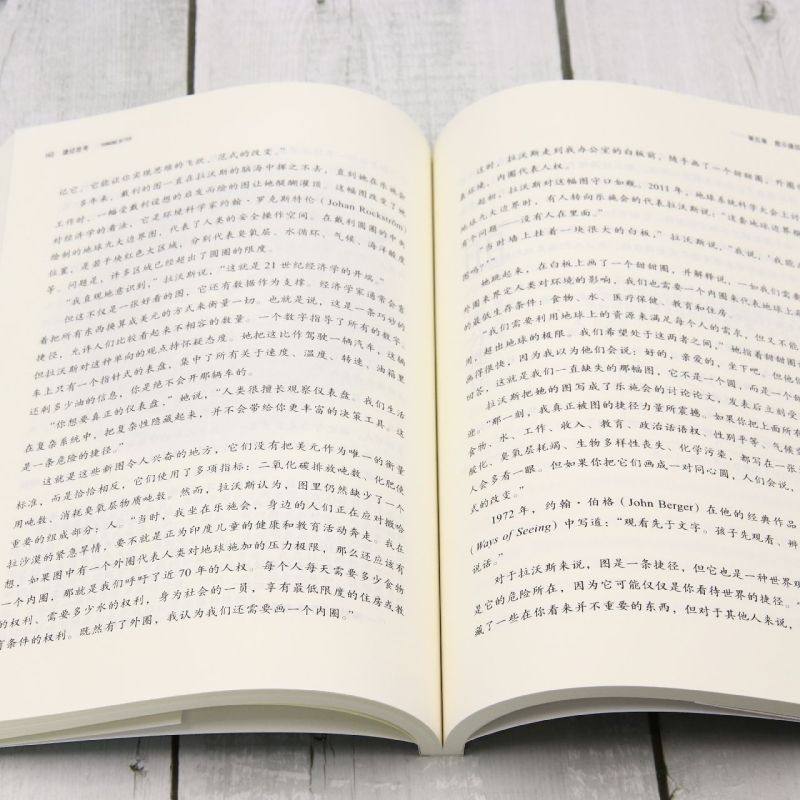 捷径思考
记它，它能让你实现思维的飞跃、范式的改变。”
多年来，戴利的图一直在拉沃斯的脑海中挥之不去，直到她在乐施会
工作时，一幅受戴利设想的启发而绘的图让她醍醐灌顶。这幅图改变了她
对经济学的看法，它是环境科学家约翰·罗克斯特伦（Johan Rockström）
绘制的地球九大边界图，代表了人类的安全操作空间。在戴利圆圈的中央
位置，是若干块红色大区域，分别代表臭氧层、水循环、气候、海洋酸度
等。问题是，许多区域已经超出了圆圈的限度。
“我直观地意识到，”拉沃斯说，“这就是 21 世纪经济学的开端。”
但这不仅是一张好看的图，它还有数据作为支撑。经济学家通常会靠
着把所有东西换算成美元的方式来衡量一切。也就是说，这是一条巧妙的
捷径，允许人们比较看起来不相容的数量。一个数字指导了所有的数字。
但拉沃斯对这种单向的观点持怀疑态度。她把这比作驾驶一辆汽车，这辆
车上只有一个指针式的表盘，集中了所有关于速度、温度、转速、油箱里
还剩多少油的信息，你是绝不会开那辆车的。
“你想要真正的仪表盘，”她说，“人类很擅长观察仪表盘。我们生活
在复杂系统中，把复杂性隐藏起来，并不会带给你更丰富的决策工具。这
是一条危险的捷径。”
这就是这些新图令人兴奋的地方，它们没有把美元作为唯一的衡量
标准，而是恰恰相反，它们使用了多项指标：二氧化碳排放吨数、化肥使
用吨数、消耗臭氧层物质吨数。然而，拉沃斯认为，图里仍然缺少了一个
重要的组成部分：人。“当时，我坐在乐施会，身边的人们正在应对撒哈
拉沙漠的紧急旱情，要不就是正为印度儿童的健康和教育活动奔走。我在
想，如果图中有一个外圈代表人类对地球施加的压力极限，那么还应该有
一个内圈，那就是我们呼吁了近 70 年的人权。每个人每天需要多少食物
的权利、需要多少水的权利，身为社会的一员，享有最低限度的住房或教
育条件的权利。既然有了外圈，我认为我们还需要画一个内圈。”
第五章
这时，拉沃斯走到我办公室的白板前，随手画了一个甜甜圈，外圈
表环境，内圈代表人权。
起初，拉沃斯对这幅图守口如瓶。2011 年，地球系统科学大会上讨
地球九大边界时，有人转向乐施会的代表拉沃斯说：“这套地球边界框
有个问题——没有人在里面。”
“当时墙上挂着一块很大的白板，”拉沃斯说，“我说，‘我能
图吗？’”
她跳起来，在白板上画了一个甜甜圈，并解释说，一如我们需要
外圈来界定人类对环境的影响，我们也需要一个内圈来代表地球上
的最低生存条件：食物、水、医疗保健、教育和住房。
“我们需要利用地球上的资源来满足每个人的需求，但又不能
用，超出地球的极限。我们希望处于这两者之间，”她指着甜甜圈
画得很快，因为我以为他们会说：好的，亲爱的，坐下吧。但他
回答，这就是我们一直缺失的那幅图，它不是一个圆，而是一个甜
拉沃斯把她的图写成了乐施会的讨论论文，发表后立刻受
迎。“那一刻，我真正被图的捷径力量所震撼。如果你把上面所有
食物、水、工作、收入、教育、政治话语权、性别平等、气候变
酸化、臭氧层耗竭、生物多样性丧失、化学污染，都写在一张
人会多看一眼。但如果你把它们画成一对同心圆，人们会说，
式的改变。”
1972 年，约翰·伯格（John Berger）在他的经典作品
（Ways of Seeing）中写道：“观看先于文字。孩子先观看、辨
说话。”
对于拉沃斯来说，图是一条捷径，但它也是一种世界观
是它的危险所在，因为它可能仅仅是你看待世界的捷径。
藏了一些在你看来并不重要的东西，但对于其他人来说，